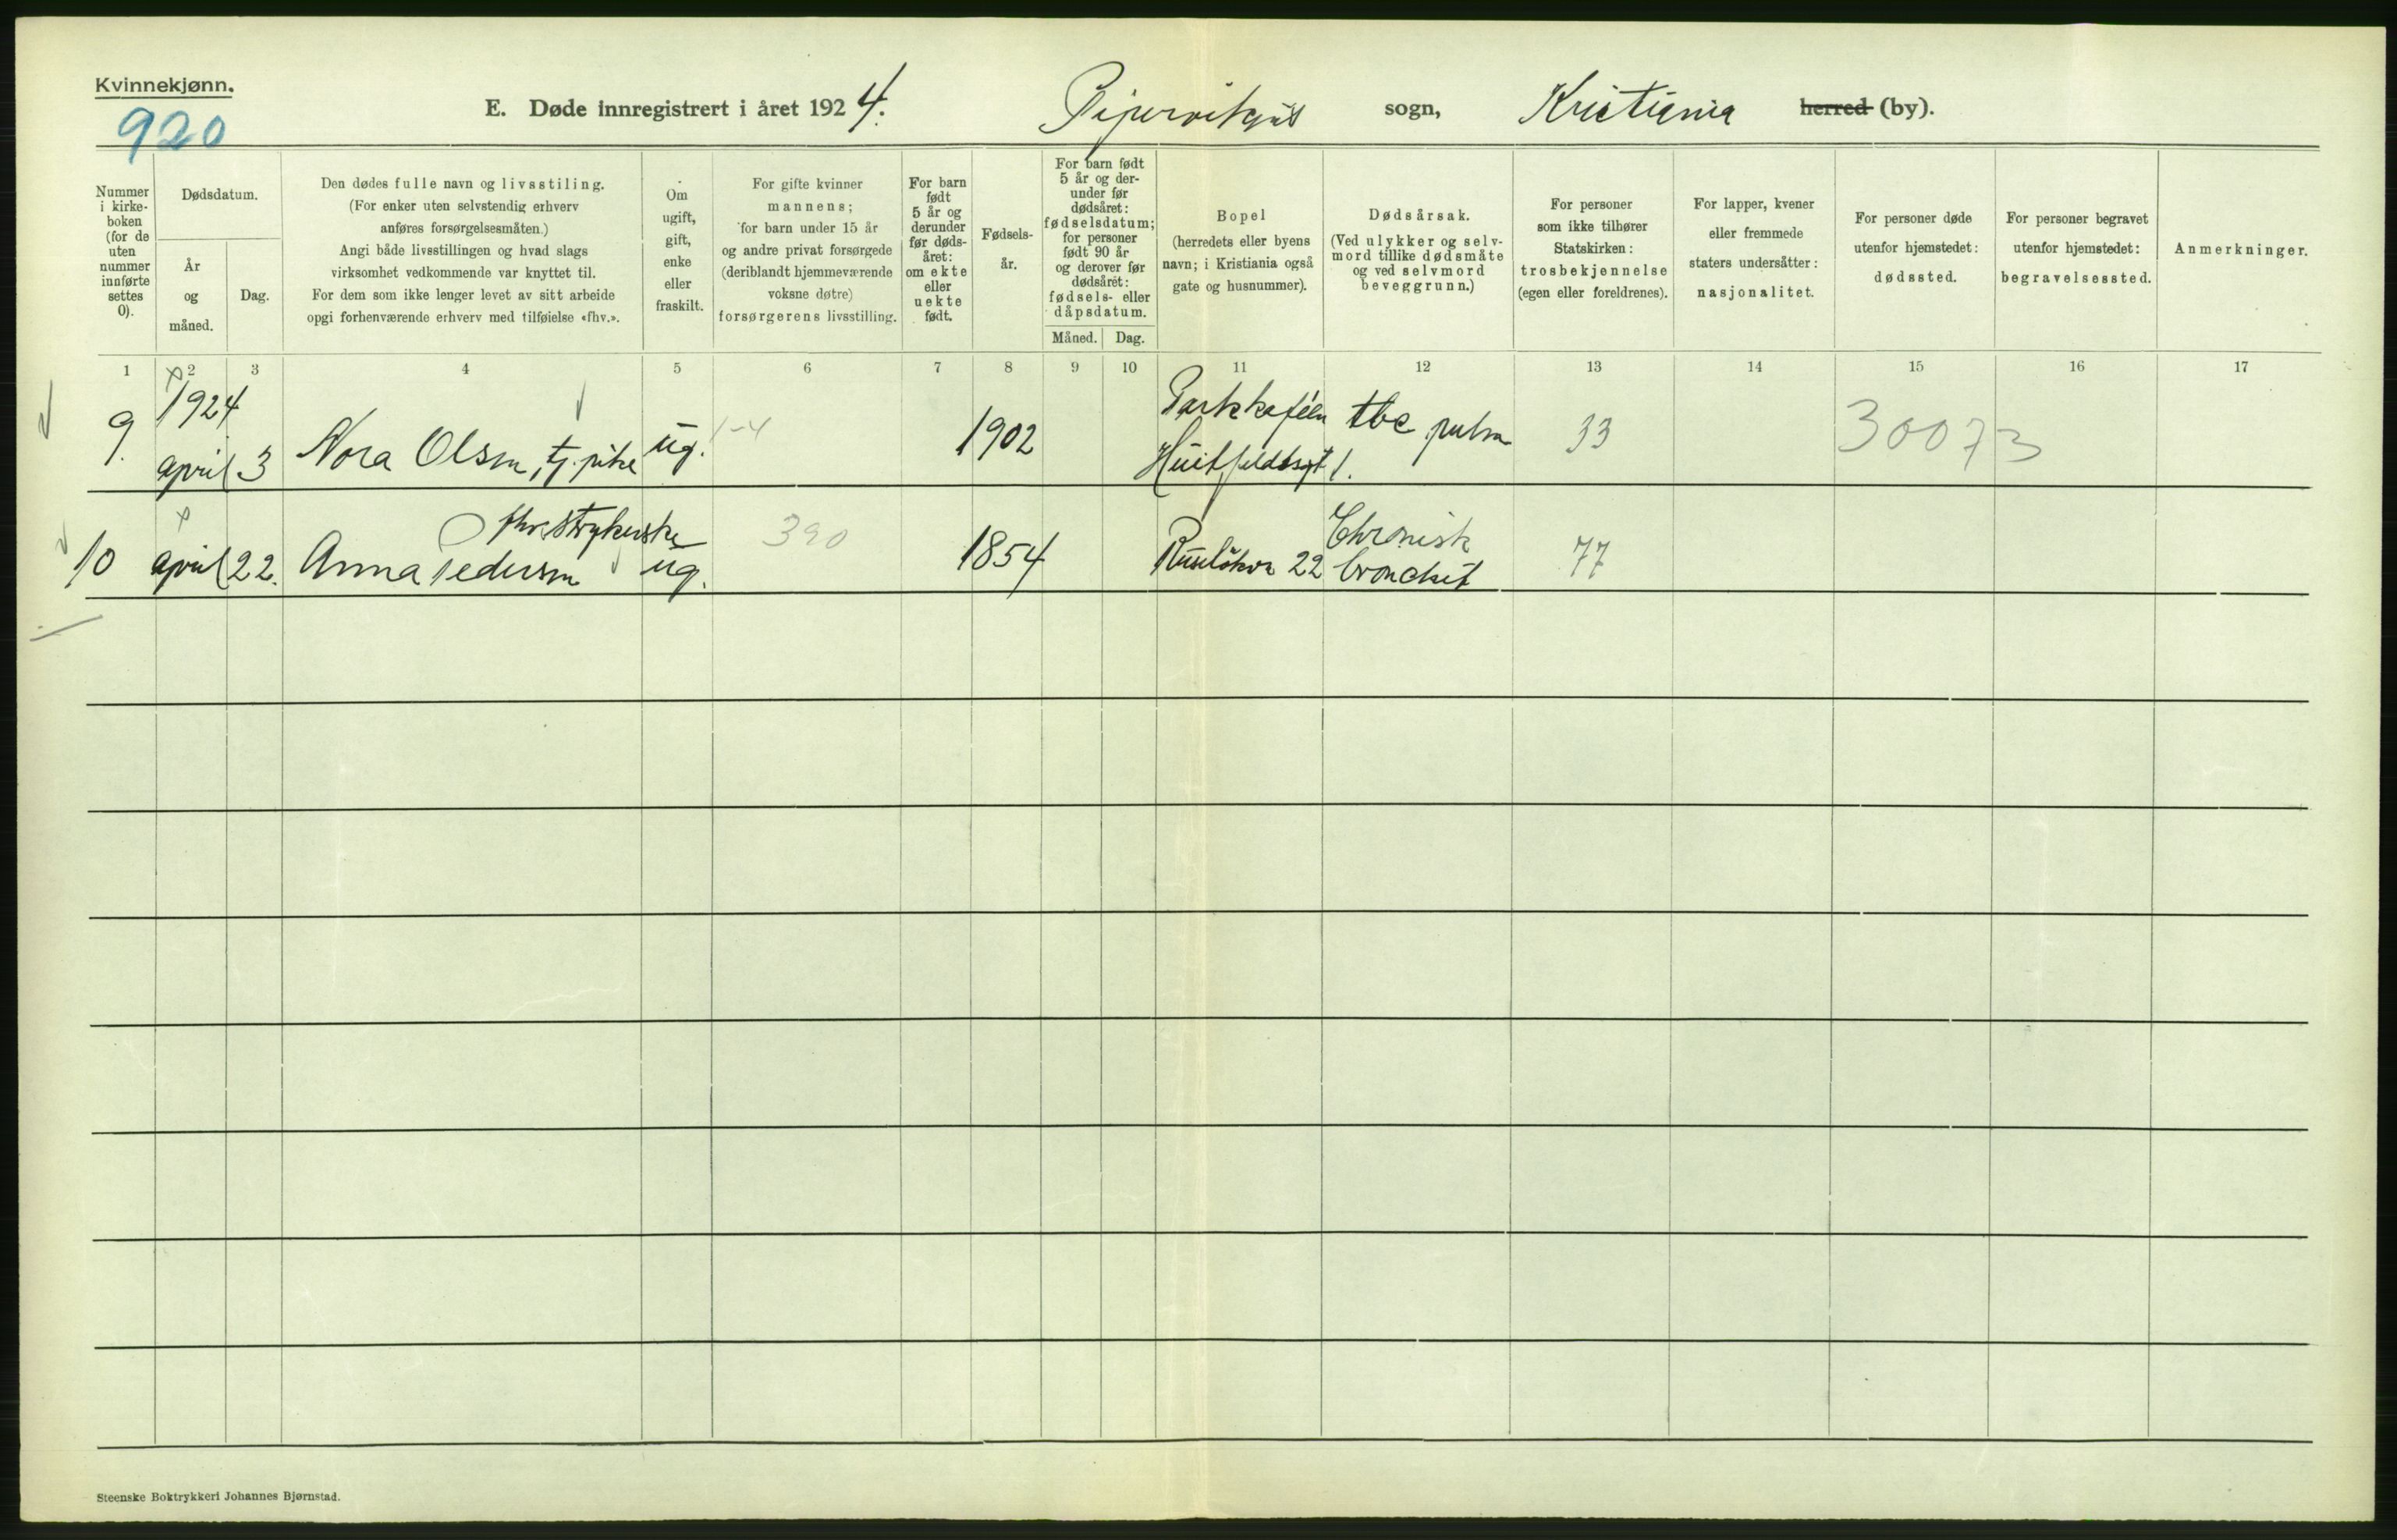 Kvinnekjønn.
920
E. Døde innregistrert i året 1924. sogn, Kristiania herred (by).
Nummer i kirke-boken (for de uten nummer innførte settes 0).
Dødsdatum.
År og måned.
Dag.
Den dødes fulle navn og livsstiling.
(For enker uten selvstendig erhverv
anføres forsørgelsesmåten.)
Angi både livsstillingen og hvad slags
virksomhet vedkommende var knyttet til.
For dem som ikke lenger levet av sitt arbeide
opgi forhenværende erhverv med tilføielse «fhv.».
Om
ugift,
gift,
enke
eller
fraskilt.
For gifte kvinner
mannens;
for barn under 15 år
og andre privat forsørgede
(deriblandt hjemmeværende
voksne døtre)
forsørgerens livsstilling.
For barn
født
5 år og
derunder
før døds-
året:
om ekte
eller
uekte
født.
Fødsels-
år.
For barn født
5 år og der-
under før
dødsåret:
fødselsdatum;
for personer
født 90 år
og derover før
dødsåret:
fødsels- eller
dåpsdatum.
Måned. Dag.
Bopel
(herredets eller byens
navn; i Kristiania også
gate og husnummer).
Dødsårsak.
(Ved ulykker og selv-
mord tillike dødsmåte
og ved selvmord
beveggrunn.)
For personer
som ikke tilhører
Statskirken:
trosbekjennelse
(egen eller foreldrenes).
For lapper, kvener
eller fremmede
staters undersåtter:
nasjonalitet.
For personer døde
utenfor hjemstedet:
dødssted.
For personer begravet
utenfor hjemstedet:
begravelsessted.
Anmerkninger.
1 2 3 4 5 6 7 8 9 10 11 12 13 14 15 16 17
1924 Parkkaféen
9. april 3 Nora Olsen, tj. pike ug. 1-4 1902 Huitfeldtsgt 1. tbc pulm 33 30073
fhv. strykerske 390 Chronisk
10 april 22. Anna Pedersen ug. 1854 Ruseløkvn 22 bronchit 77
Steenske Boktrykkeri Johannes Bjørnstad.